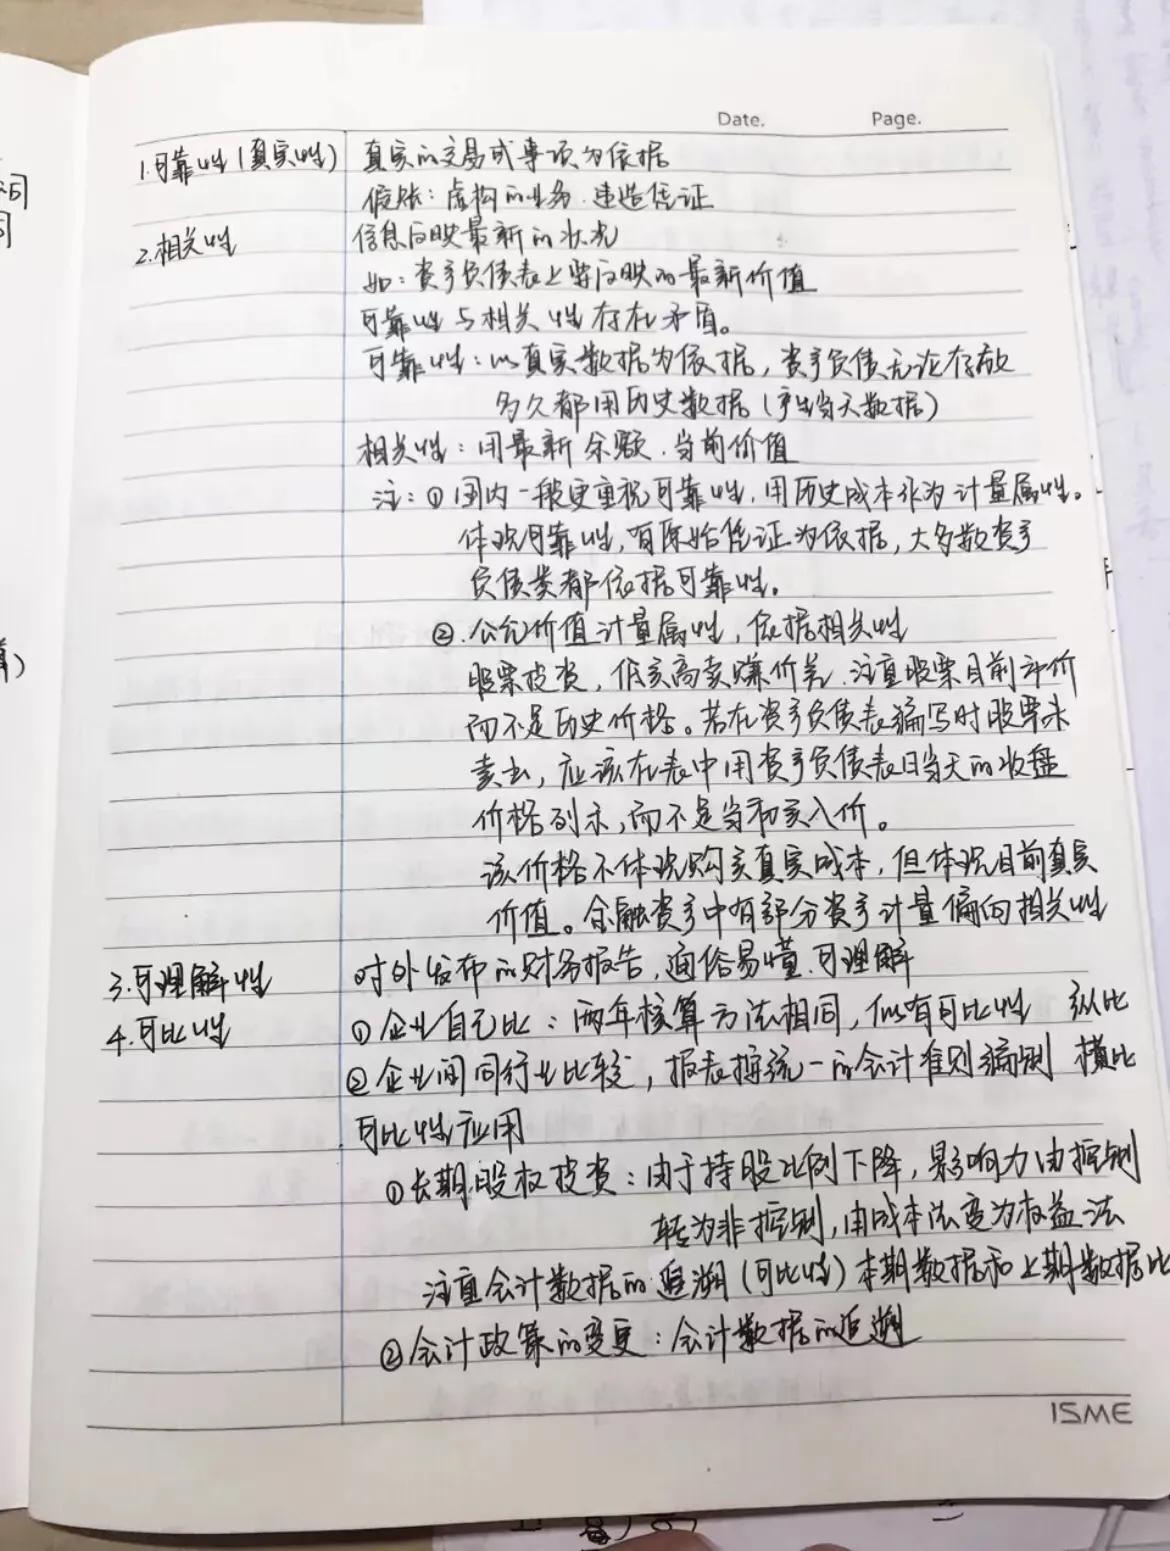 Date. Page.
1.可靠性(真实性) 真实的交易或事项为依据
假账:虚构的业务.违造凭证
2.相关性 信息反映最新的状况
如:资产负债表上要反映的最新价值
可靠性与相关性存在矛盾。
可靠性:以真实数据为依据,资产负债无论存放
多久都用历史数据(产生当天数据)
相关性:用最新余额.当前价值
注:①国内一般更重视可靠性,用历史成本作为计量属性。
体现可靠性,有原始凭证为依据,大多数资产
负债类都依据可靠性。
②.公允价值计量属性,依据相关性
股票投资,低买高卖赚价差.注重股票目前市价
而不是历史价格。若在资产负债表编写时股票未
卖去,应该在表中用资产负债表日当天的收盘
价格列示,而不是当初买入价。
该价格不体现购买真实成本,但体现目前真实
价值。金融资产中有部分资产计量偏向相关性
3.可理解性 对外发布的财务报告,通俗易懂.可理解
4.可比性 ①企业自己比:两年核算方法相同,似有可比性 纵比
②企业间同行业比较,报表按统一的会计准则编制 横比
可比性应用
①长期股权投资:由于持股比例下降,影响力由控制
转为非控制,由成本法变为权益法
注重会计数据的追溯(可比性)本期数据和上期数据比
②会计政策的变更:会计数据的追溯
ISME